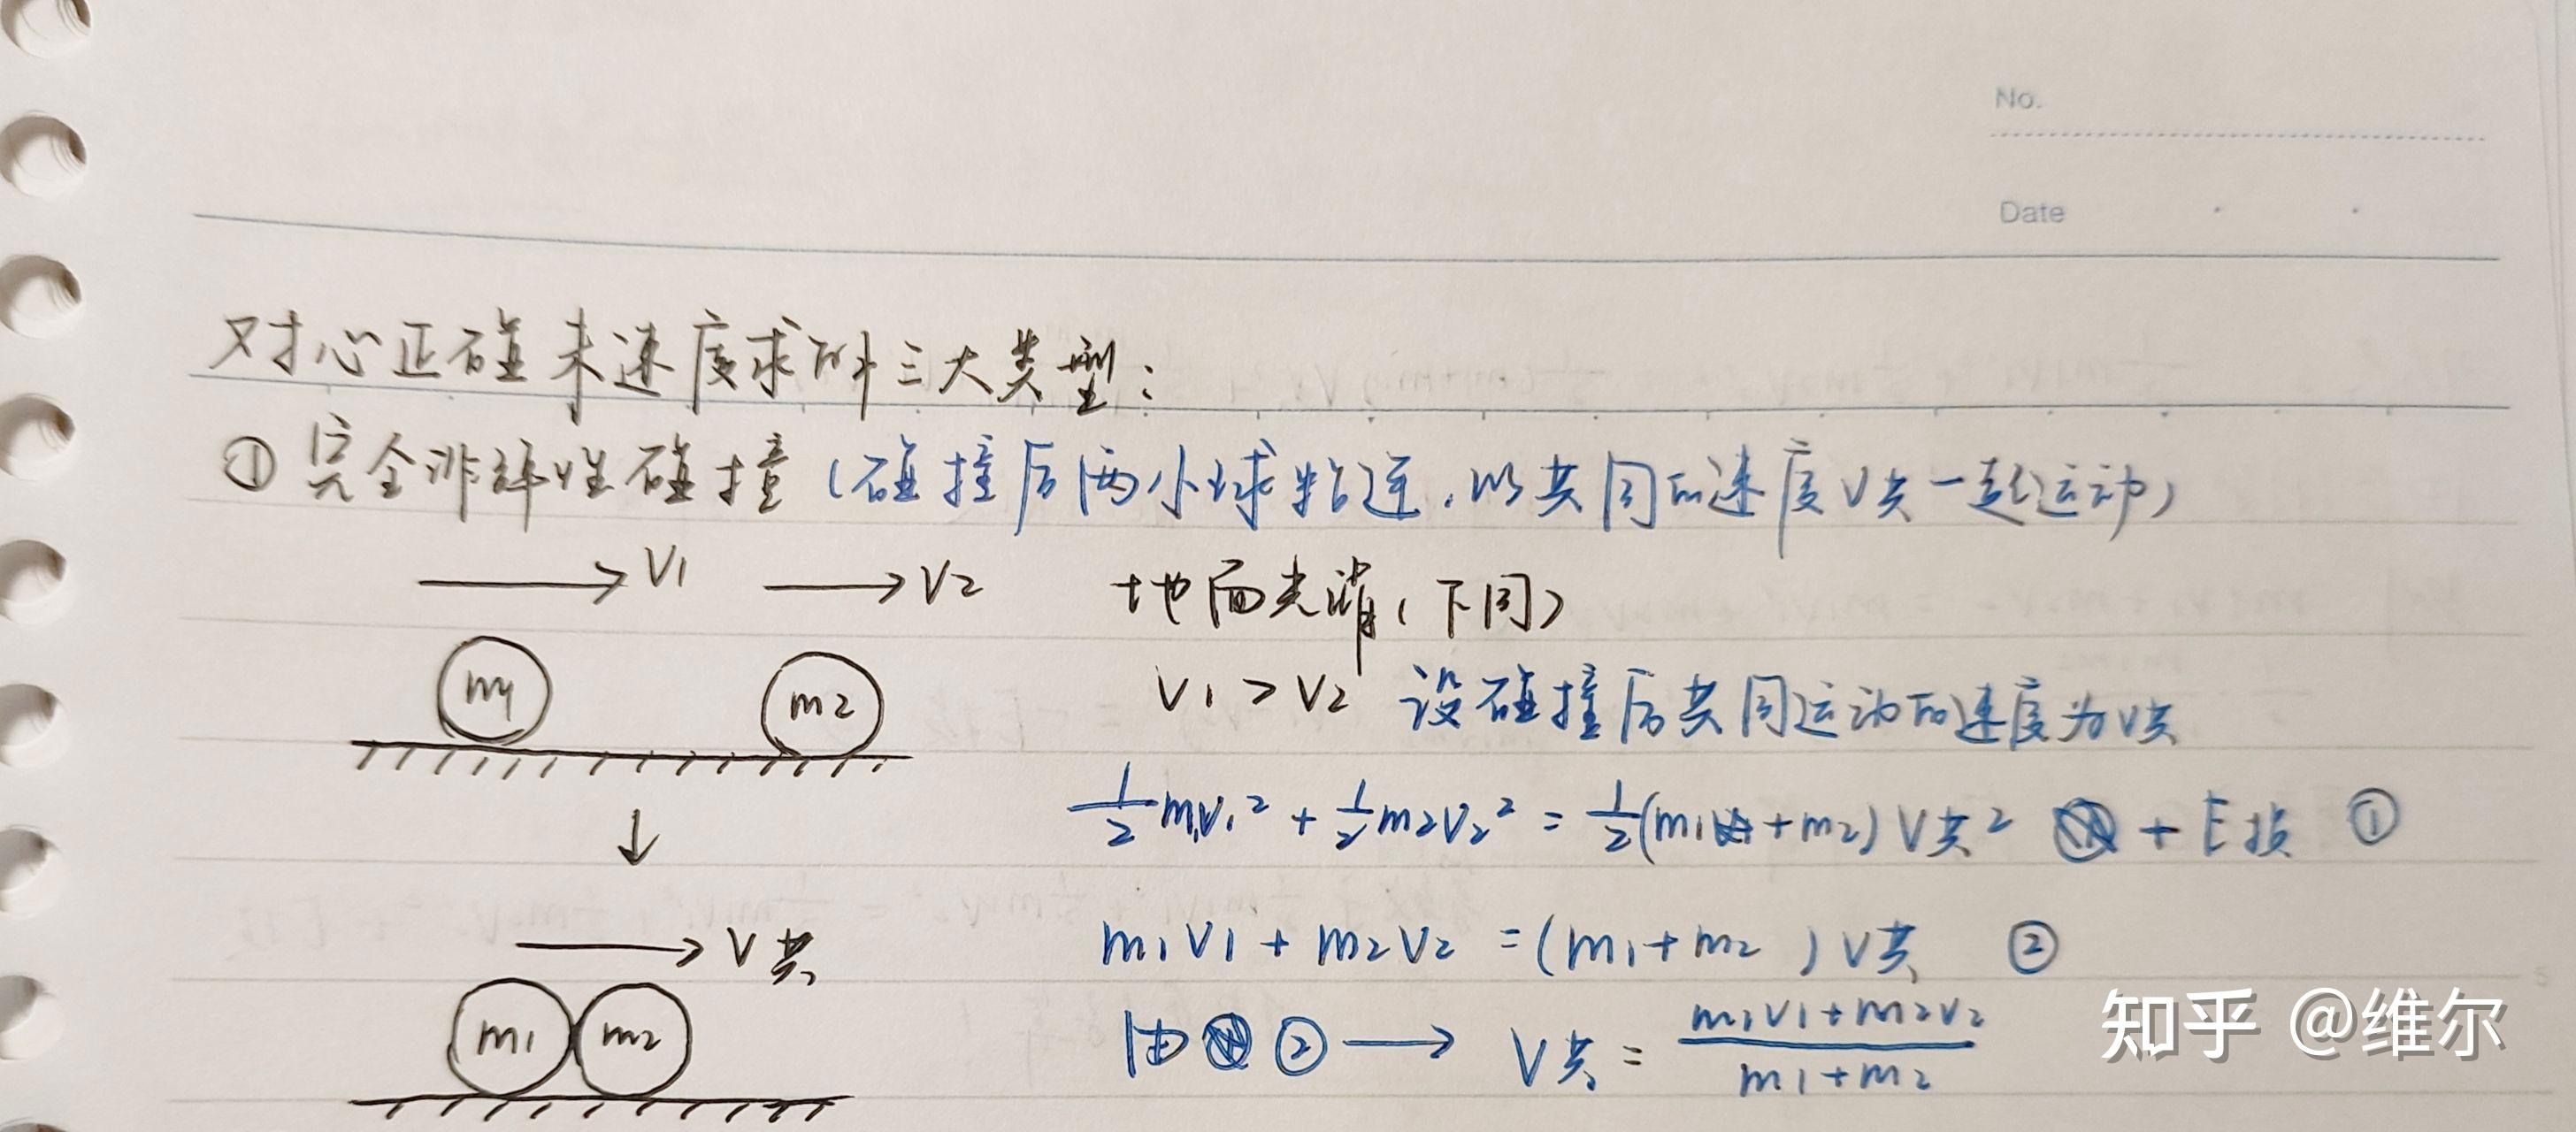 No.
Date
对心正碰末速度求解三大类型：
① 完全非弹性碰撞（碰撞后两小球粘连，以共同的速度V共一起运动）
V1 V2 地面光滑（下同）
m1 m2 V1 > V2 设碰撞后共同运动的速度为V共
½m₁V₁² + ½m₂V₂² = ½(m₁+m₂)V共² + E损 ①
V共 m₁V₁ + m₂V₂ = (m₁+m₂)V共 ②
m1 m2 由②→ V共 = (m₁V₁+m₂V₂)/(m₁+m₂)
知乎 @维尔